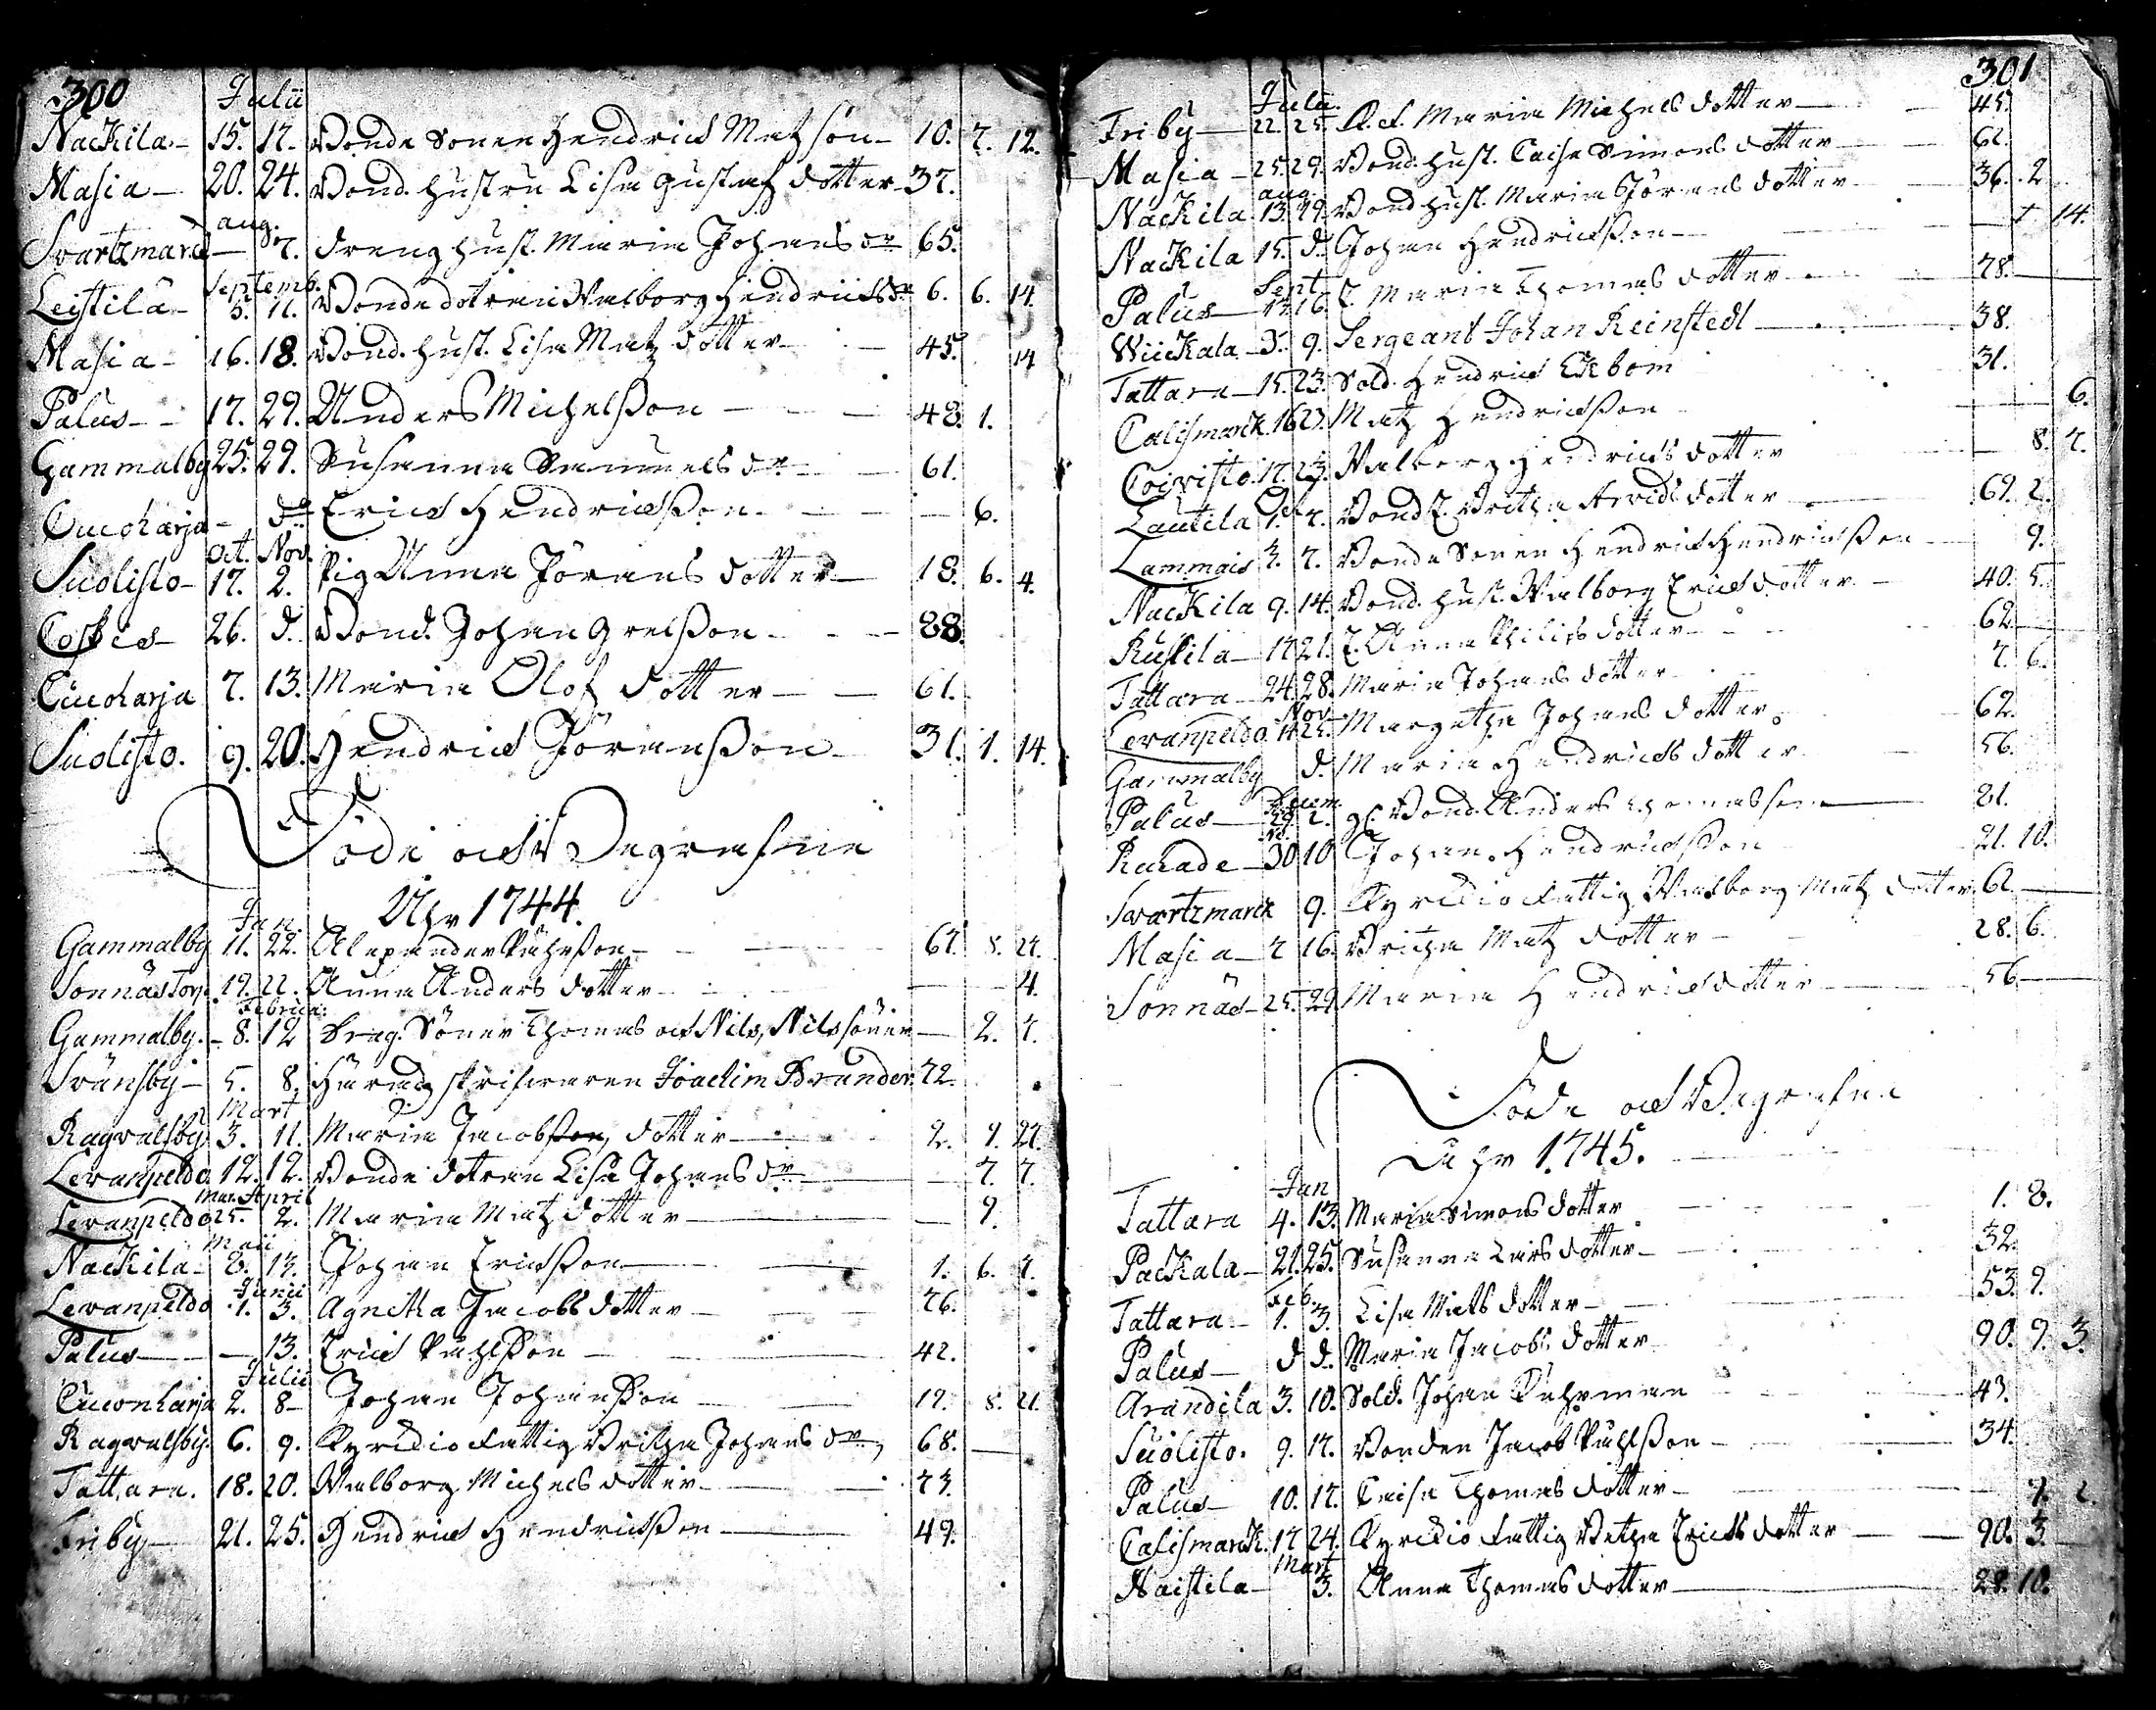 300
Julii
Nackila 15. 17. Bonde Sonen Hendrick Matzson 10. 7. 12.
Masia 20. 24. Bond. hustru Lisa Gustafz dotter 37.
aug.
Svartzmarck 7. Dreng hust. Maria Johans dr 65.
Septemb.
Leistila 5. 11. Bonde dotren Walborg Hendricks dr 6. 6. 14.
Masia 16. 18. Bond. hust. Lisa Matz dotter 45. 14
Palus 17. 29. Anders Michelsson 48. 1.
Gammalby 25. 29. Susanna Samuels dr 61.
Cucoharja do Erick Hendricksson 6.
Oct. Nov.
Suolisto 17. 2. Pig. Anna Jörans dotter 18. 6. 4.
Coskis 26. d. Bond. Johan Grelsson 88.
Cucoharja 7. 13. Maria Olof dotter 61.
Suolisto. 9. 20. Hendrick Göransson 31. 1. 14.
Döde och Begrafne
Åhr 1744.
Jan.
Gammalby 11. 22. Alexander Påhlsson 67. 8. 27.
Sonnäs Torp. 19. 22. Anna Anders dotter 4.
Februa:
Gammalby. 8. 12 Drag. Söner Thomas och Nils, Nils söner 2. 7.
Svänsby 5. 8. Häradz skrifwaren Joachim Brunder. 72.
Mart
Ragvalsby 3. 11. Maria Jacobsson, dotter 2. 9. 27.
Levanpeldo 12. 12. Bonde dotren Lisa Johans dr 7. 7.
Mar. April
Levanpeldo 25. 2. Maria Matz dotter 9.
Maii
Nackila 8. 13. Johan Ericksson 1. 6. 7.
Junii
Levanpeldo 1. 3. Agnetha Jacobs dotter 76.
Palus 13. Erick Påhlsson 42.
Julii
Cuconharja 2. 8 Johan Johansson 12. 8. 21.
Ragvalsby. 6. 9. Kyrckio fattig Britha Johans dr, 68.
Tattara. 18. 20. Walborg Michels dotter 73.
Friby 21. 25. Hendrick Hendricksson 49.
301
Julii.
Friby 22. 25. Maria Michels dotter 45.
Masia 25. 29. Bond. hust. Caisa Simons dotter 62.
aug.
Nackila 13. 19. Bond hust. Maria Jörans dotter 36. 2
Nackila 15. d. Johan Hendricksson 1 14.
Sept
Palus 13 16. Maria Thomas dotter 78.
Wiickala 3. 9. Sergeant Johan Reinstedl 38.
Tattara 15. 23. Sold. Hendrick Ekbom 31.
Calismarck 16 23. Matz Hendricksson 6.
Coivisto 17. 23. Walborg Hendricks dotter 8. 7.
Oct
Lautila 1. 7. Bond Britha Arvids dotter 62. 2.
Lammais 3. 7. Bonde Sonen Hendrick Hendricksson 9.
Nackila 9. 14. Bond. hust. Walborg Ericks dotter 40. 5.
Kusila 17 21. Anna Philips dotter 62.
Tattara 24 28. Maria Johans dotter 7. 6.
Nov
Levanpeldo 17 25. Margetha Johans dotter 62.
Gammalby d. Maria Hendricks dotter 56.
Decem
Palus 29. 2. gl. Bond. Anders Thomasson 81.
Raade 30 10 Johan Hendricksson 21. 10.
Swartzmarck 9. Kyrckio fattig Walborg Matz dotter 62.
Masia 7 16. Britha Matz dotter 28. 6.
Sonnäs 25. 29. Maria Hendricks dotter 56
Döde och Begrafne
Åhr 1745.
Jan
Tattara 4. 13. Maria Simons dotter 1. 8.
Packala 21. 25. Susanna Lars dotter 32.
Feb.
Tattara 1. 3. Lisa Mats dotter 53. 9.
Palus d d. Maria Jacobs dotter 90. 9. 3.
Arandila 3. 10. Sold. Johan 43.
Suolisto. 9. 17. Bonden Jacob Påhlsson 34.
Palus 10. 17. Caisa Thomas dotter 7. 2.
Calismarck. 17 24. Kyrckio fattig Betha Ericks dotter 90. 3.
Mart
Haistila 3. Anna Thomas dotter 28. 10.